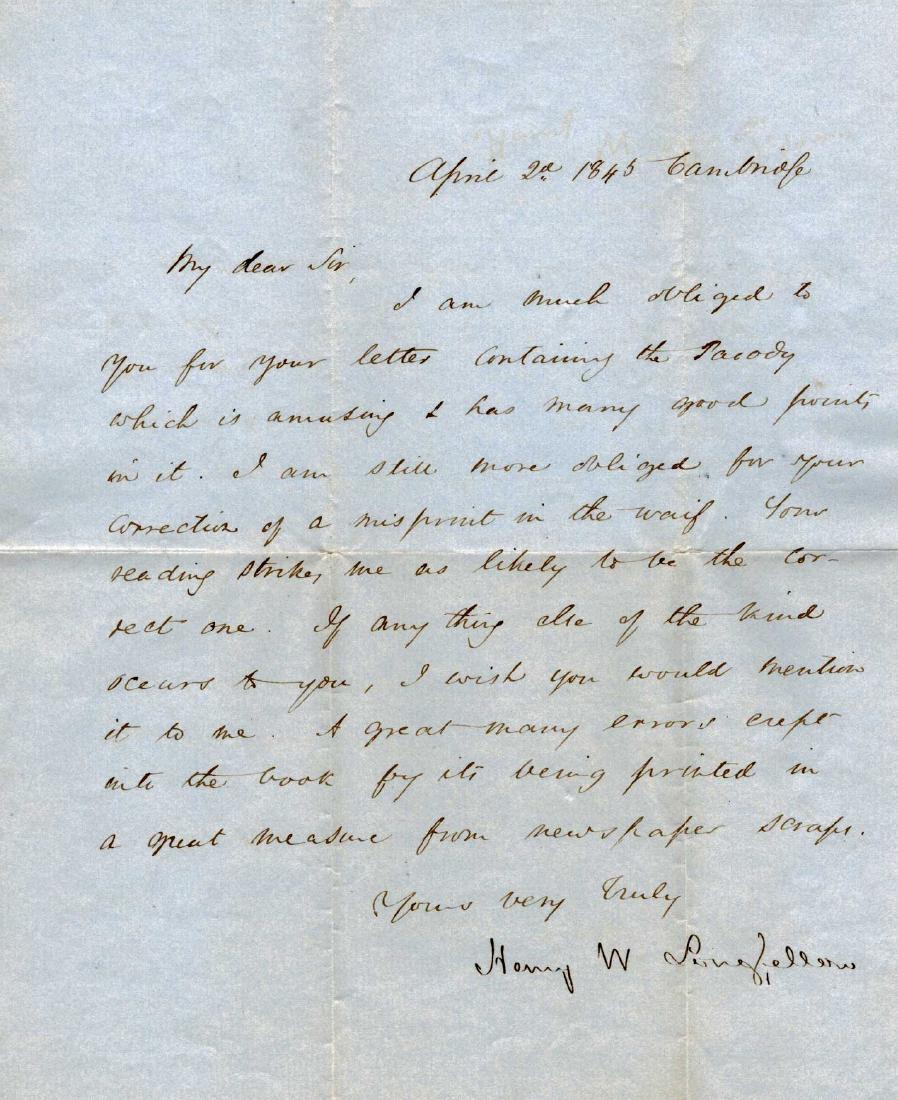 April 2d 1845 Cambridge
My dear Sir,
I am much obliged to
you for your letter containing the Parody
which is amusing & has many good points
in it. I am still more obliged for your
correction of a misprint in the waif. Your
reading strikes me as likely to be the cor-
rect one. If any thing else of the kind
occurs to you, I wish you would mention
it to me. A great many errors crept
into the book by its being printed in
a great measure from newspaper scraps.
Yours very Truly
Henry W Longfellow